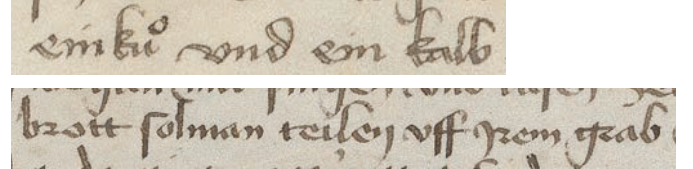 ein kuͦ vnd ein kalb
brott sol man teilen vff jrem grab